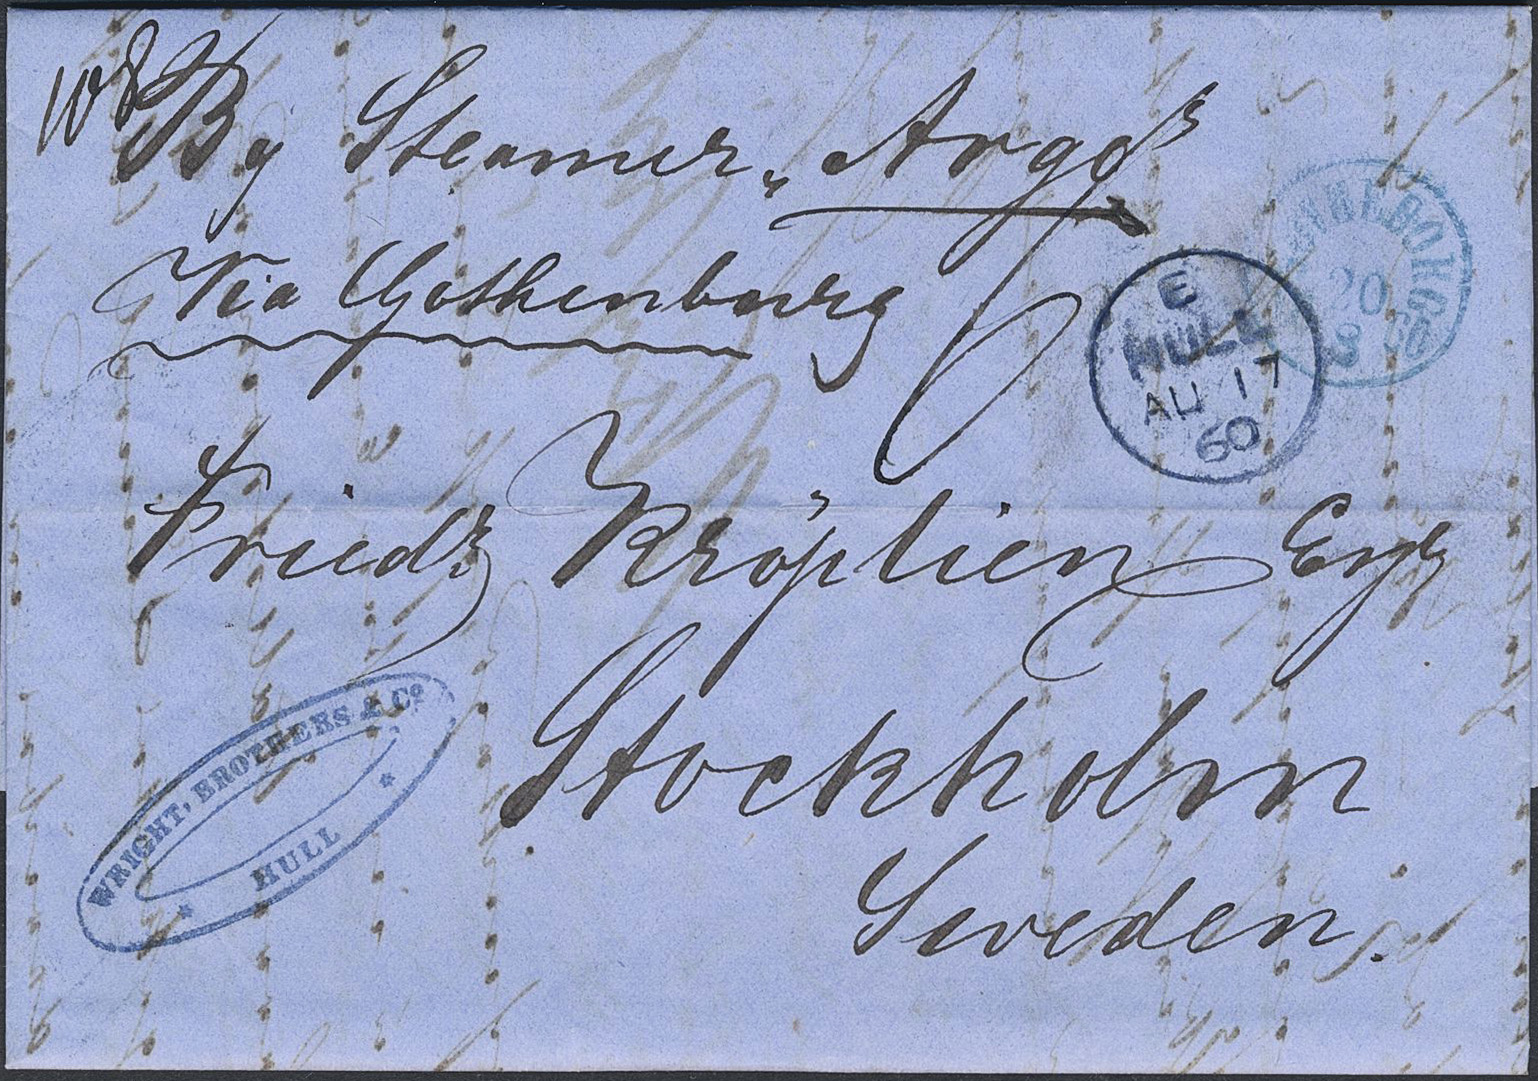 By Steamer „Argo“
Via Gothenburg
GÖTHEBORG
20
8
E
HULL
AU 17
60
Friedr Kröplien Esqr
Stockholm
Sweden.
WRIGHT, BROTHERS & Co
HULL